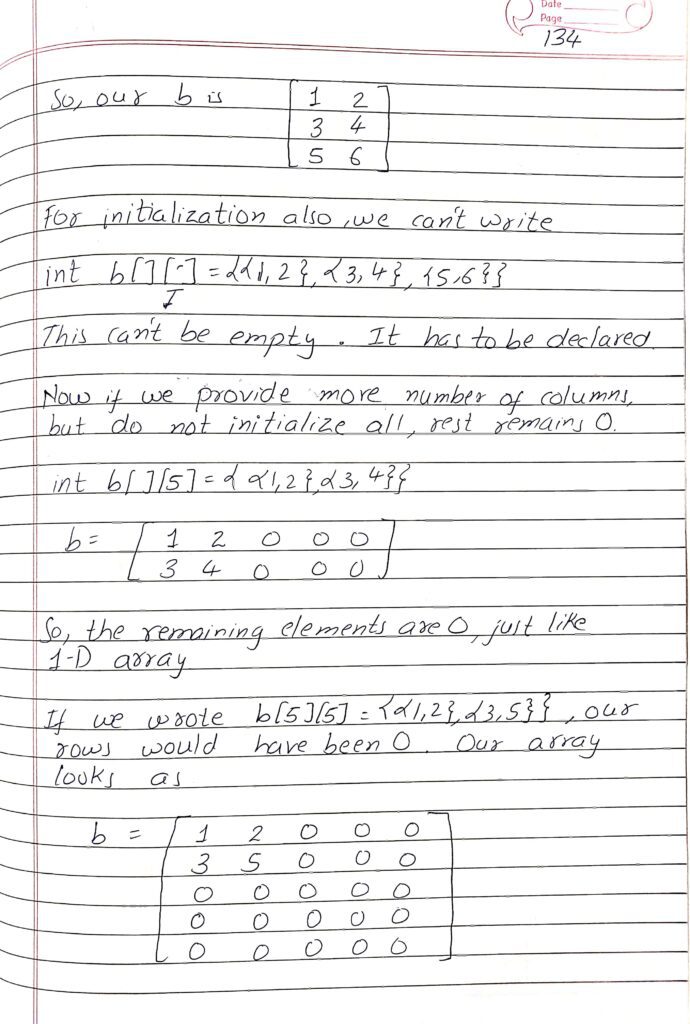 Date
Page
134
So, our b is
1 2
3 4
5 6
For initialization also, we can't write
int b[][] = {{1, 2}, {3, 4}, {5,6}}
This can't be empty. It has to be declared.
Now if we provide more number of columns,
but do not initialize all, rest remains 0.
int b[][5] = {{1,2},{3, 4}}
b = 1 2 0 0 0
3 4 0 0 0
So, the remaining elements are 0, just like
1-D array
If we wrote b[5][5] = {{1,2},{3,5}}, our
rows would have been 0. Our array
looks as
b = 1 2 0 0 0
3 5 0 0 0
0 0 0 0 0
0 0 0 0 0
0 0 0 0 0